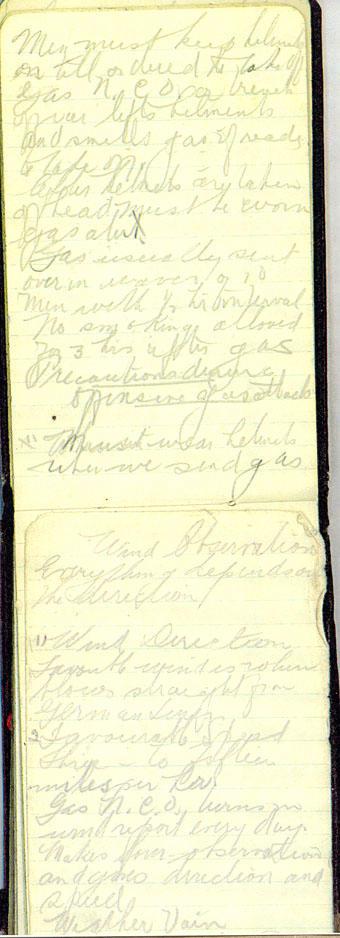 Men must keep helmets
on till ordered to take off
gas N.C.O. or trench
lifts helments
and smells gas if ready
to take off
helmets are taken
off head, must be worn
gas alert
Gas usually sent
over in waves of 10
Men with ½ hr interval
No smoking allowed
for 3 hrs after gas
Precautions during
offensive gas attack
wear helmets
when we send gas
Wind Observation
Everything depends on
the direction
1) Wind Direction
wind is when
blows straight from
German Lines
2 Favourable speed
to
miles per hr.
Gas N.C.O. turns in
wind report every day.
Makes observation
and gives direction and
speed
Weather Vain